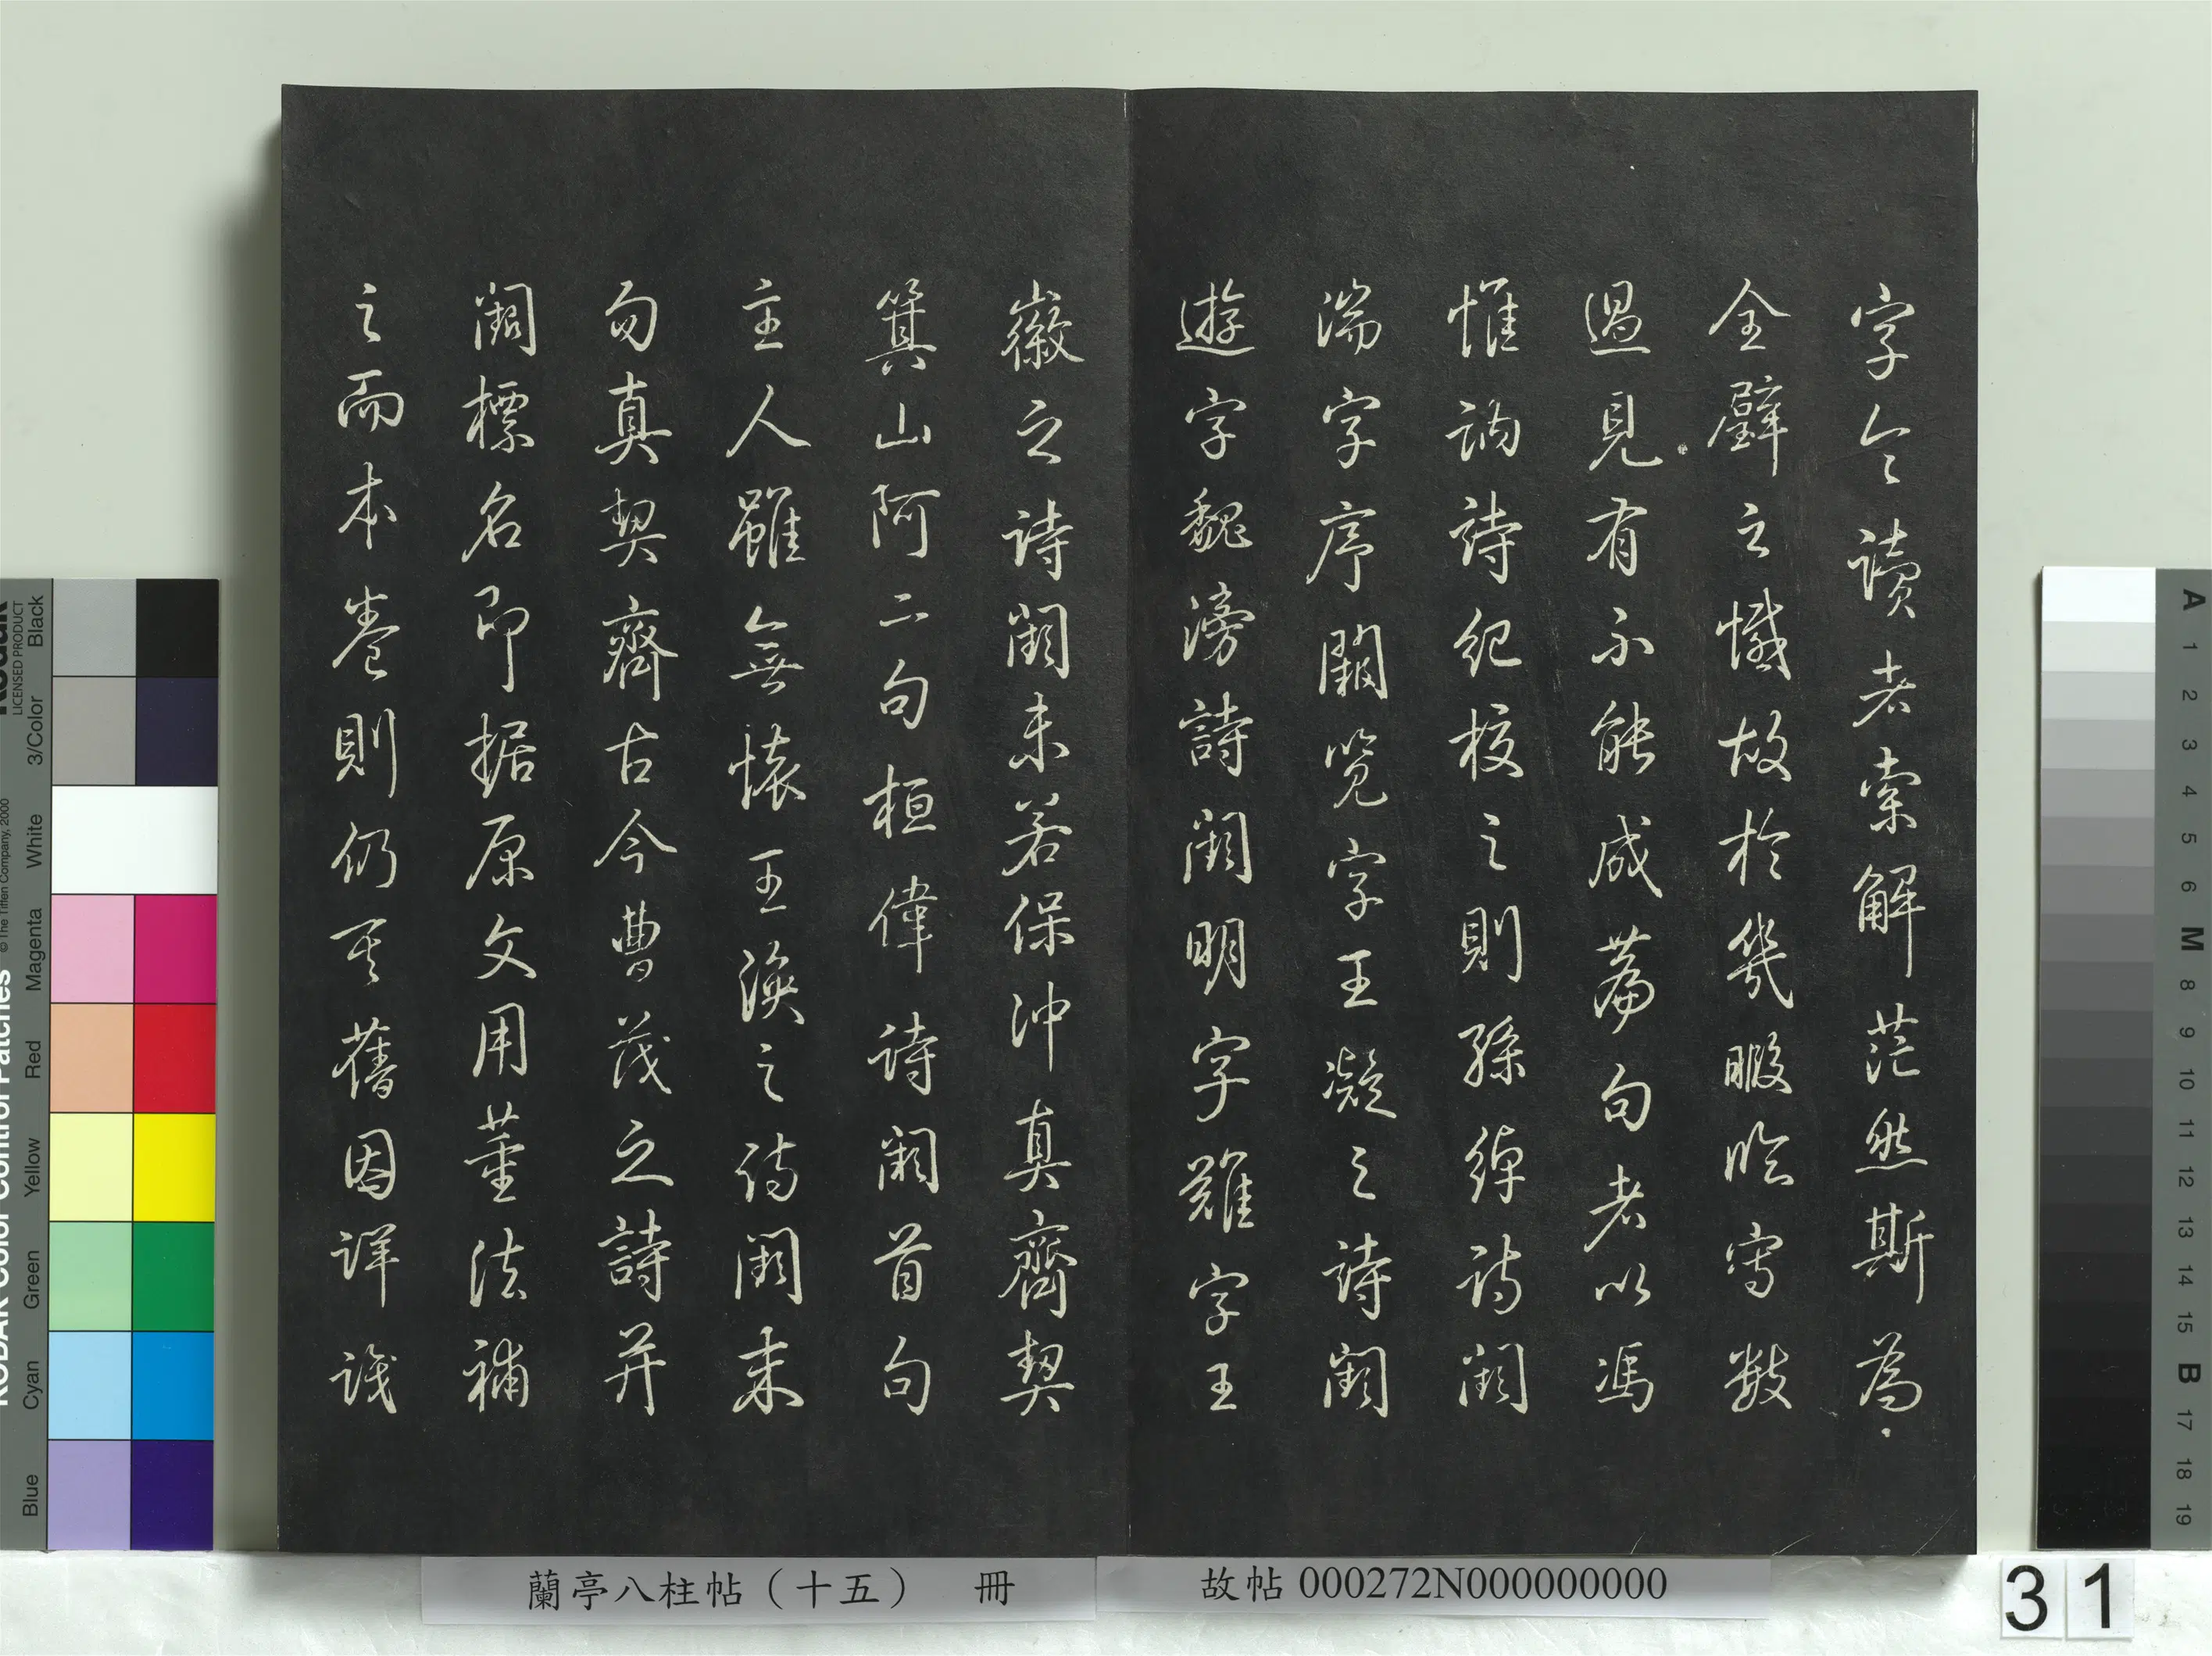 字令讀者索解茫然斯為
全璧之憾故於幾暇臨寫數
過見有不能成篇句者以馮
惟訥詩紀校之則孫綽詩闕
湍字序闕覽字王凝之詩闕
遊字魏滂詩闕明字難字王
徽之詩闕未若保沖真齊契
箕山阿二句桓偉詩闕首句
主人雖無懷王渙之詩闕來
勿真契齊古今曹茂之詩并
闕標名即据原文用董法補
之而本卷則仍其舊因詳識
蘭亭八柱帖(十五) 冊
故帖000272N000000000
31
KODAK Color Control Patches
© The Tiffen Company, 2000
Kodak
LICENSED PRODUCT
Blue Cyan Green Yellow Red Magenta White 3/Color Black
A 1 2 3 4 5 6 M 8 9 10 11 12 13 14 15 B 17 18 19